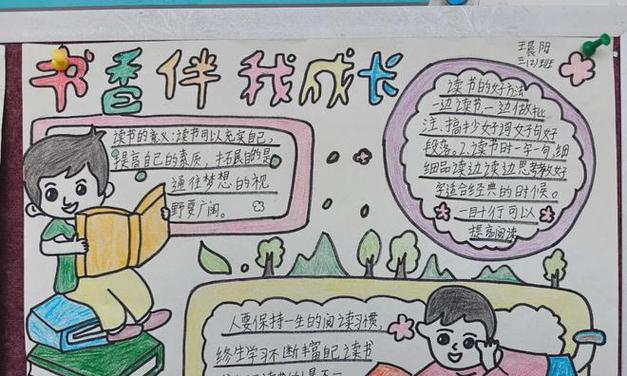 书香伴我成长
王晨阳
三(2)班
读书的意义:读书可以充实自己,
提高自己的素质、拓展自的是
通往梦想的视
野要广阔。
读书的好方法
一边读书一边做批
注、摘抄好词好句好
段落。2.读书时一字一句,细
细品读边读边思考
学适合经典的时候。
一目十行可以
提高阅读
人要保持一生的阅读习惯,
终生学习不断丰富自己读书